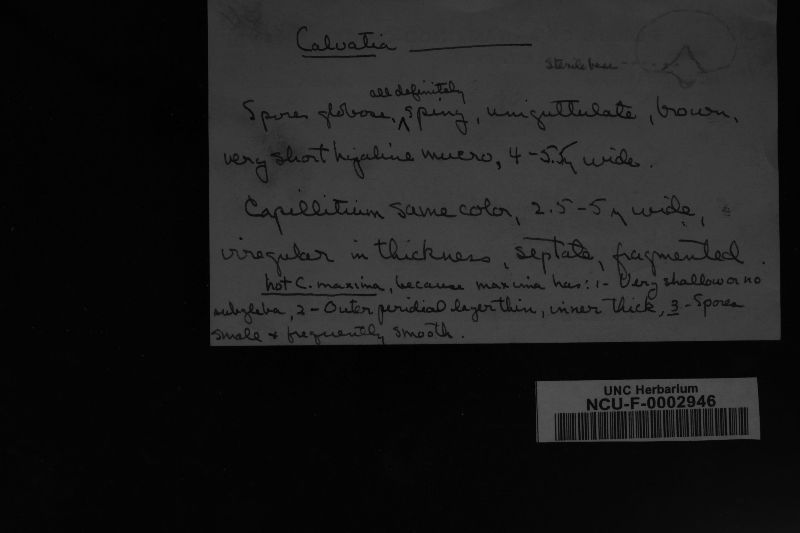 Calvatia
Sterile base
all definitely
Spores globose, ^ spiny, uniguttulate, brown,
very short hyaline mucro, 4-5.5µ wide.
Capillitium same color, 2.5-5µ wide,
irregular in thickness, septate, fragmented.
not C. maxima, because maxima has: 1- Very shallow or no
subgleba, 2- Outer peridial layer thin, inner thick, 3- Spores
small & frequently smooth.
UNC Herbarium
NCU-F-0002946